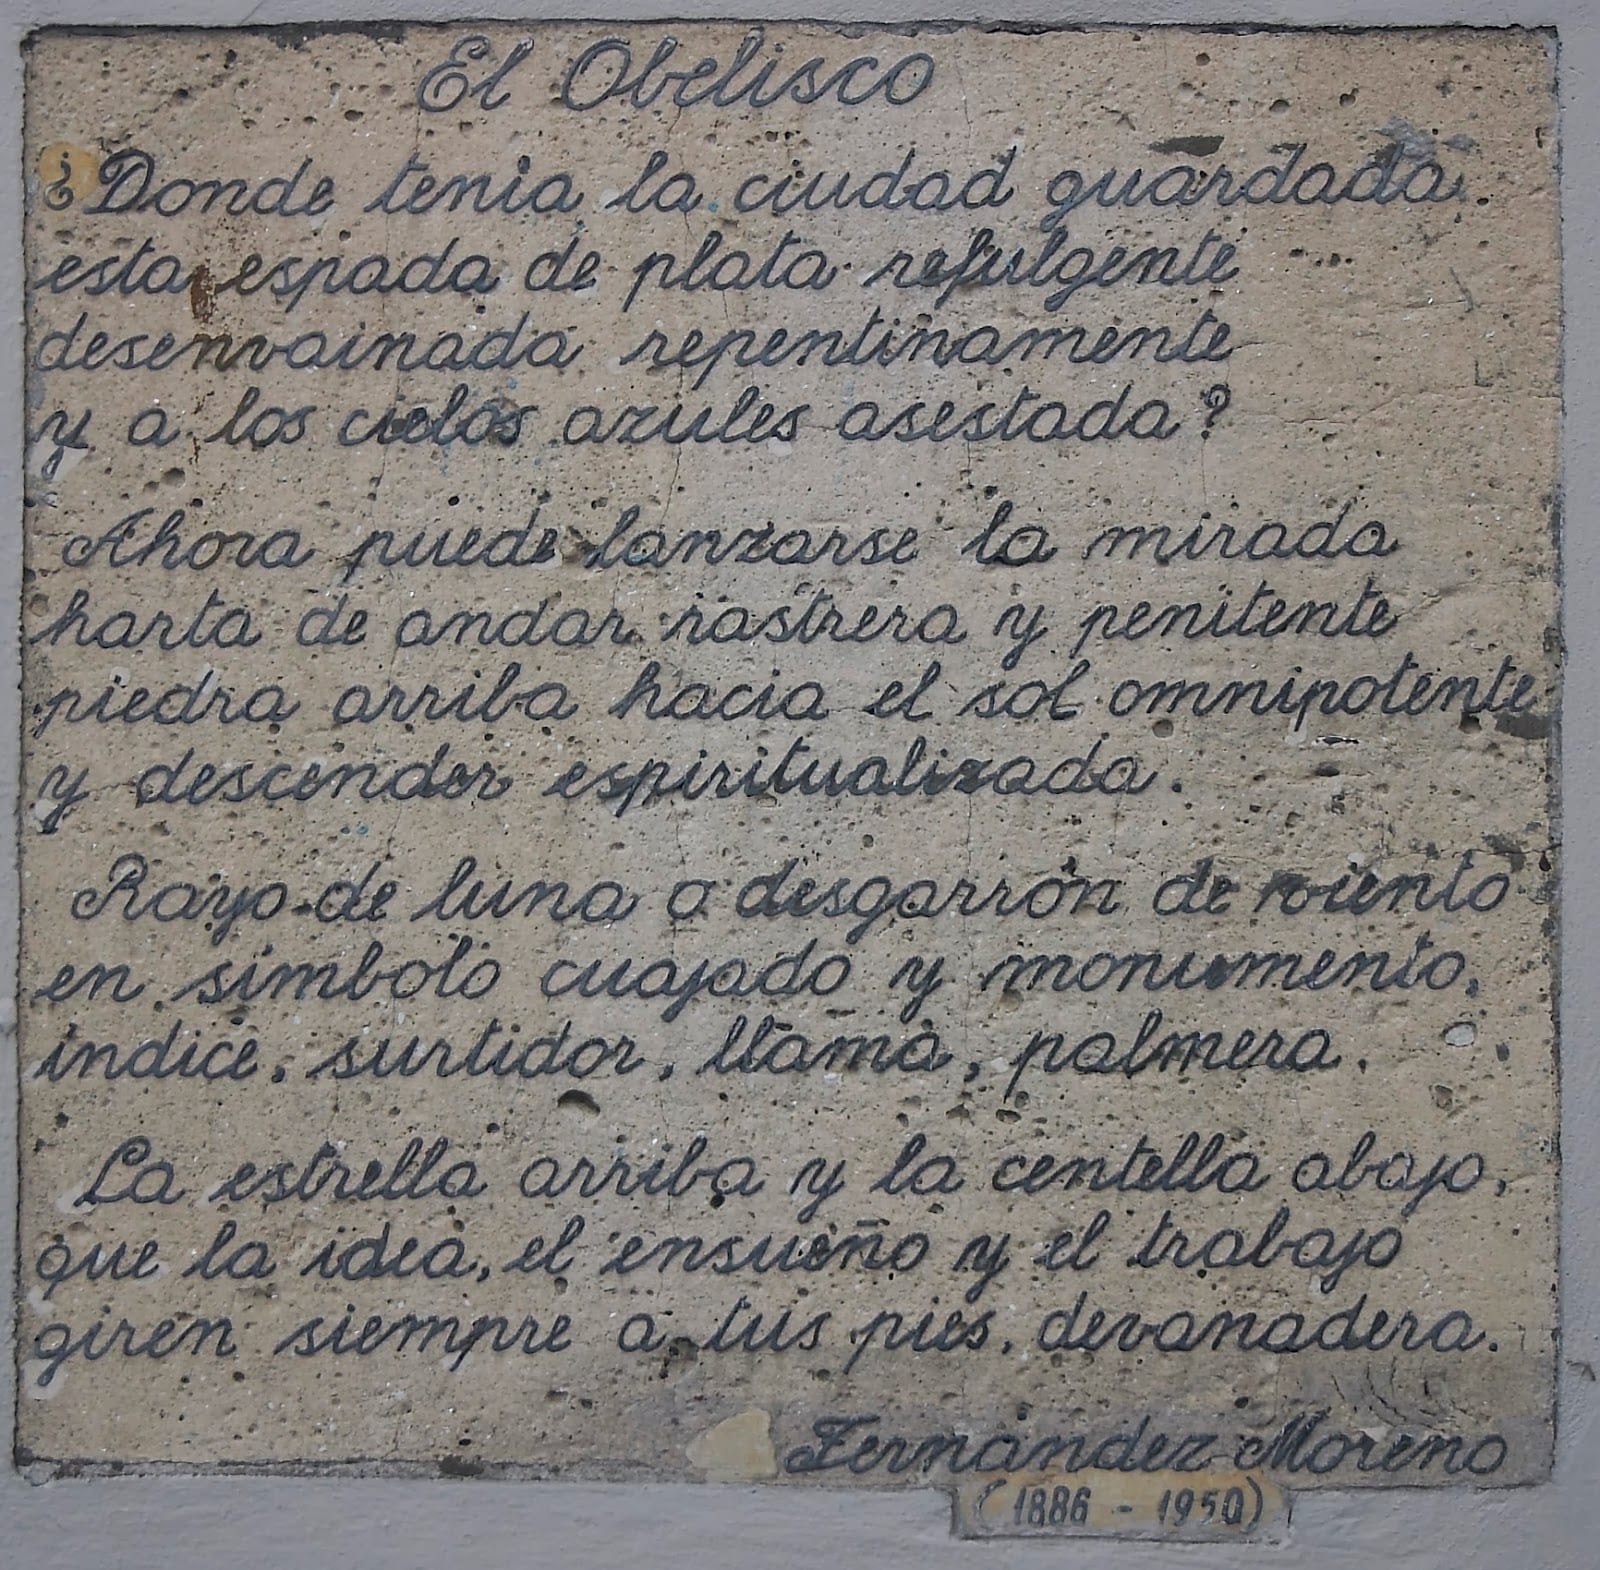 El Obelisco
¿Donde tenia la ciudad guardada
esta espada de plata refulgente
desenvainada repentinamente
y a los cielos azules asestada?
Ahora puede lanzarse la mirada
harta de andar rastrera y penitente
piedra arriba hacia el sol omnipotente
y descender espiritualizada.
Rayo de luna o desgarrón de viento
en simbolo cuajado y monumento,
indice, surtidor, llama, palmera.
La estrella arriba y la centella abajo,
que la idea, el ensueño y el trabajo
giren siempre a tus pies, devanadera.
Fernandez Moreno
(1886 - 1950)